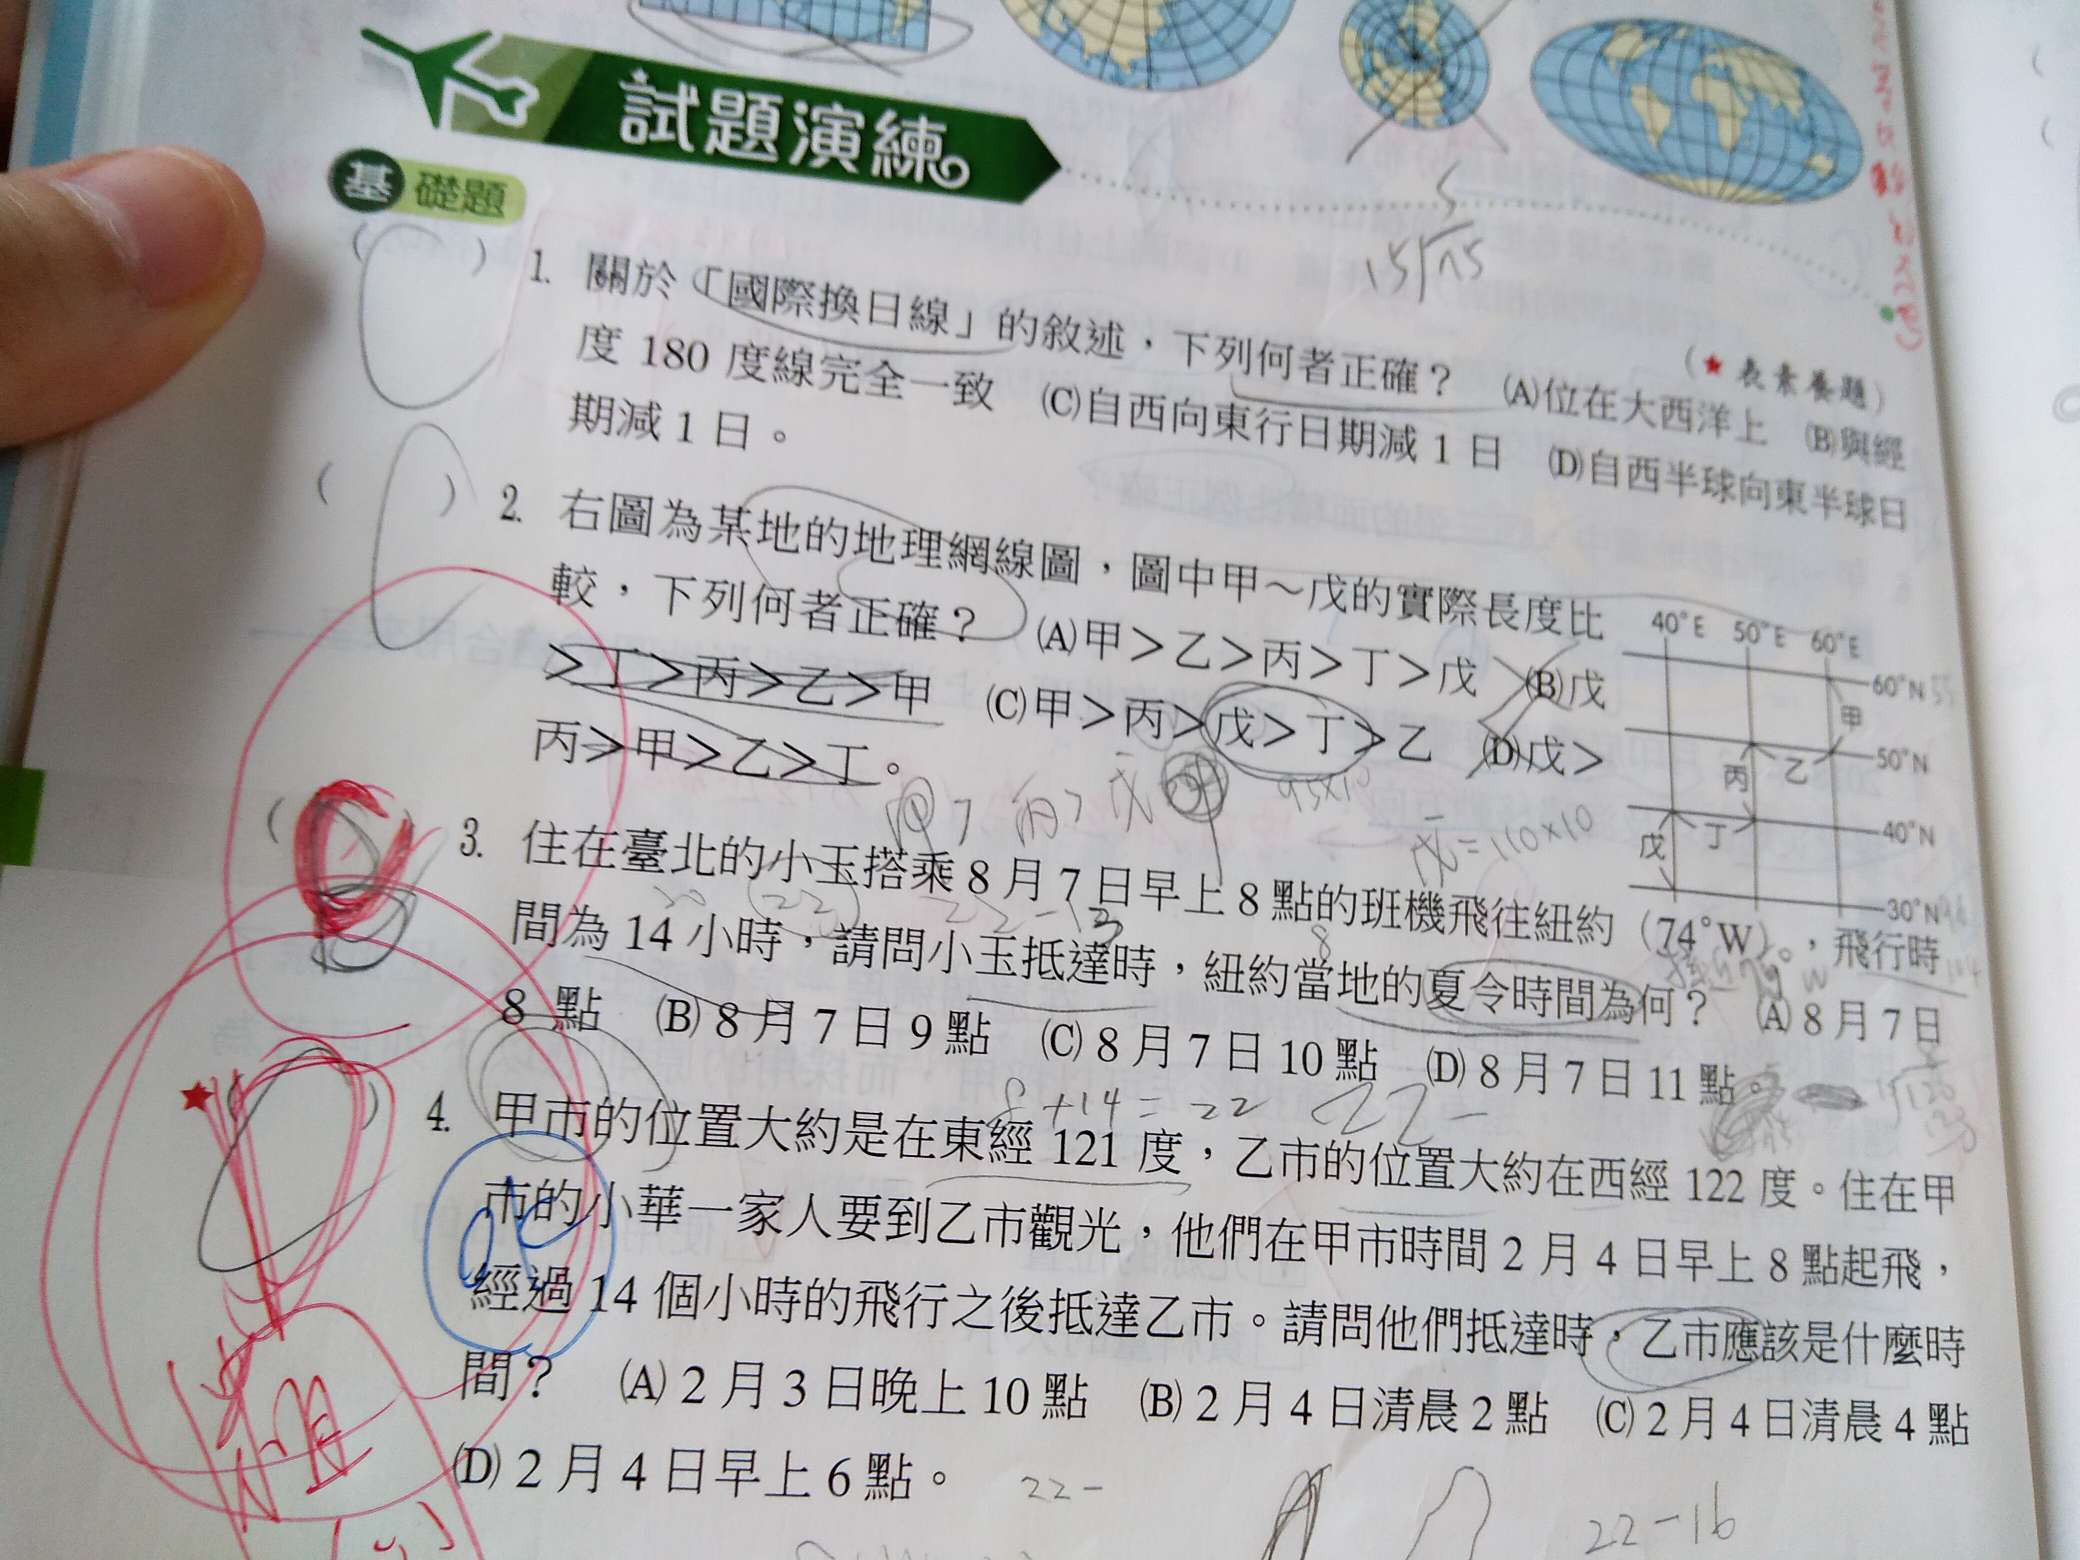 試題演練
基礎題
15
(★表素養題)
( ) 1. 關於「國際換日線」的敘述，下列何者正確？ (A)位在大西洋上 (B)與經
度 180 度線完全一致 (C)自西向東行日期減 1 日 (D)自西半球向東半球日
期減 1 日。
( ) 2. 右圖為某地的地理網線圖，圖中甲～戊的實際長度比
較，下列何者正確？ (A)甲＞乙＞丙＞丁＞戊 (B)戊
＞丁＞丙＞乙＞甲 (C)甲＞丙＞戊＞丁＞乙 (D)戊＞
丙＞甲＞乙＞丁。
40°E 50°E 60°E
60°N
甲
50°N
丙 乙
40°N
戊 丁
30°N
甲＞丙＞戊
95×10
戊=110×10
( ) 3. 住在臺北的小玉搭乘 8 月 7 日早上 8 點的班機飛往紐約（74°W），飛行時
22-13
間為 14 小時，請問小玉抵達時，紐約當地的夏令時間為何？ (A) 8 月 7 日
8 點 (B) 8 月 7 日 9 點 (C) 8 月 7 日 10 點 (D) 8 月 7 日 11 點。
C
8+14=22 22-
★( ) 4. 甲市的位置大約是在東經 121 度，乙市的位置大約在西經 122 度。住在甲
市的小華一家人要到乙市觀光，他們在甲市時間 2 月 4 日早上 8 點起飛，
經過 14 個小時的飛行之後抵達乙市。請問他們抵達時，乙市應該是什麼時
間？ (A) 2 月 3 日晚上 10 點 (B) 2 月 4 日清晨 2 點 (C) 2 月 4 日清晨 4 點
(D) 2 月 4 日早上 6 點。
22-
22-16